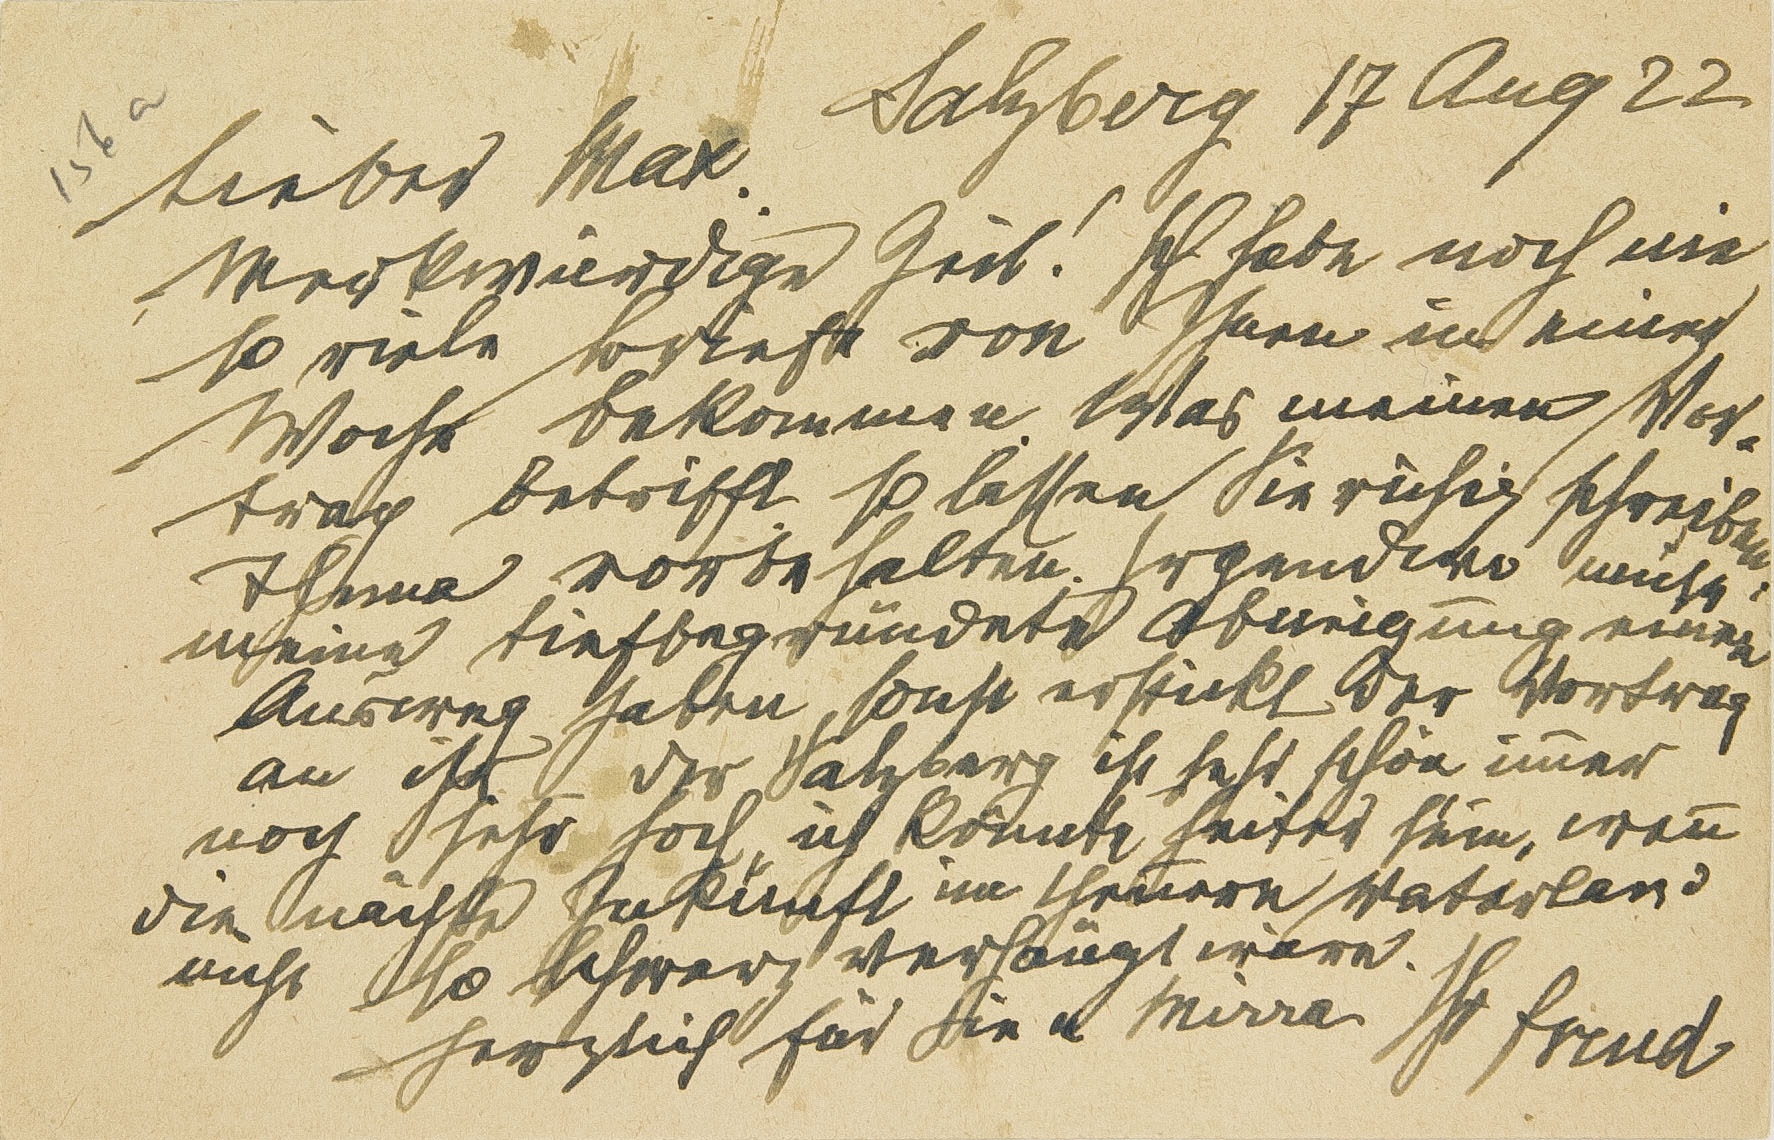 156 a
Salzberg 17 Aug 22
Lieber Max.
Merkwürdige Zeit! Ich habe noch nie
so viele Briefe von Ihnen in einer
Woche bekommen. Was meinen Vor-
trag betrifft so lassen Sie ruhig schreiben:
Thema vorbehalten. Irgendwo muß
meine tiefbegründete Abneigung einen
Ausweg haben, sonst erstickt der Vortrag
an ihr. Der Salzberg ist sehr schön im̄er
noch sehr hoch, ich könnte heiter sein, wen̄
die nächste Zukunft im theuern Vaterland
nicht so schwarz verhängt wäre.
Herzlich für Sie u Mirra Ihr Freud